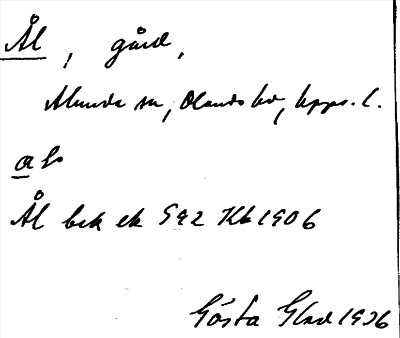 Ål, gård,
Alunda sn, Olands hd, Upps. l.
Ål bek ek 592 Kbl 1906
Gösta Glad 1936